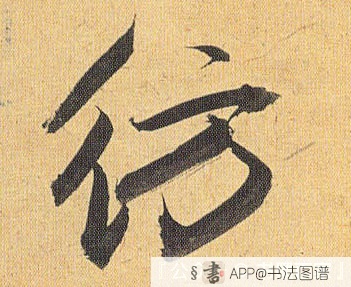 彷
§書 APP@书法图谱